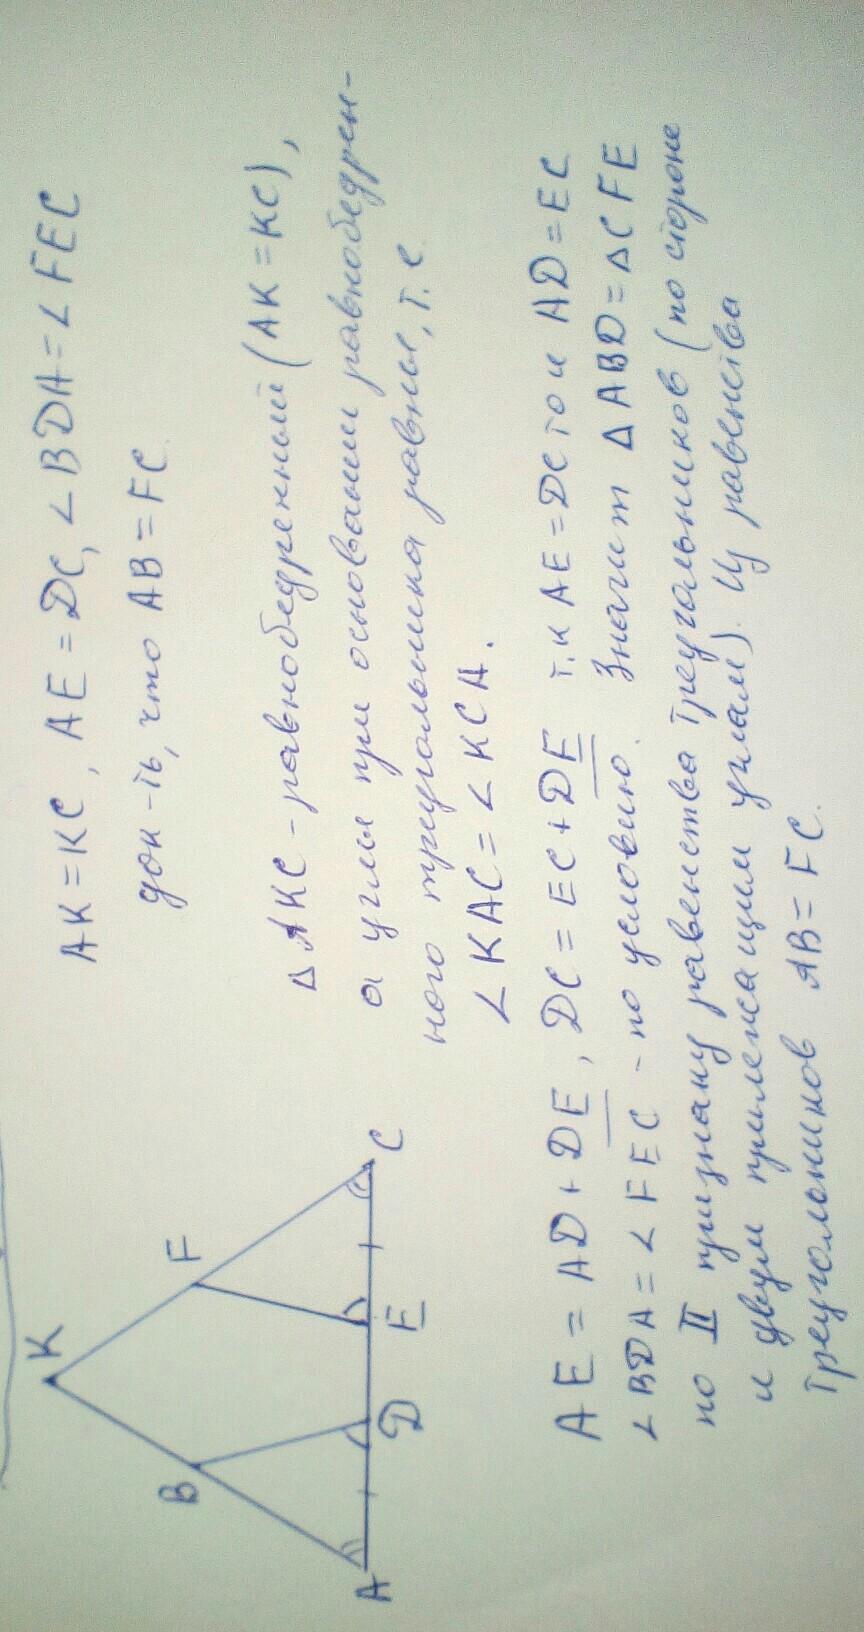 AK = KC, AE = DC, ∠BDA = ∠FEC
док-ть, что AB = FC.
K
B
F
A
D
E
C
△ AKC - равнобедренный (AK = KC),
а углы при основании равнобедрен-
ного треугольника равны, т.е.
∠KAC = ∠KCA.
AE = AD + DE, DC = EC + DE т.к AE = DC то и AD = EC
∠BDA = ∠FEC - по условию. Значит △ABD = △CFE
по II признаку равенства треугольников (по стороне
и двум прилежащим углам). Из равенства
треугольников AB = FC.